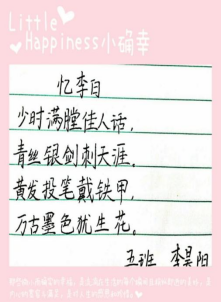 Little
Happiness小确幸
忆李白
少时满膛佳人话，
青丝银剑刺天涯，
黄发投笔戴铁甲，
万古墨色犹生花。
五班 李昊阳